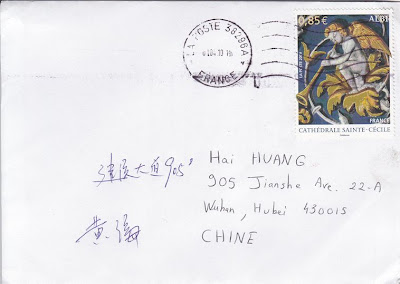 LA POSTE 38296A
FRANCE
0,85€ ALBI
LA POSTE
FRANCE
CATHÉDRALE SAINTE-CÉCILE
建设大道905
Hai HUANG
905 Jianshe Ave. 22-A
Wuhan, Hubei 430015
CHINE